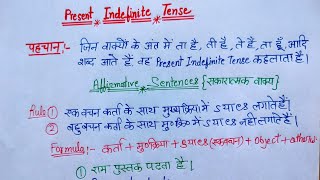 Present Indefinite Tense
पहचान:- जिन वाक्यों के अंत में ता है, ती है, ते हैं, ता हूँ, आदि
शब्द आते हैं। वह Present Indefinite Tense कहलाता है।
Affirmative Sentences {सकारात्मक वाक्य}
Rule ① एकवचन कर्ता के साथ मुख्य क्रिया में s या es लगाते हैं।
② बहुवचन कर्ता के साथ मु० क्रि० में s या es नहीं लगाते हैं।
Formula:- कर्ता + मु० क्रि० + s या es (एकवचन) + object + other
① राम पुस्तक पढ़ता है।